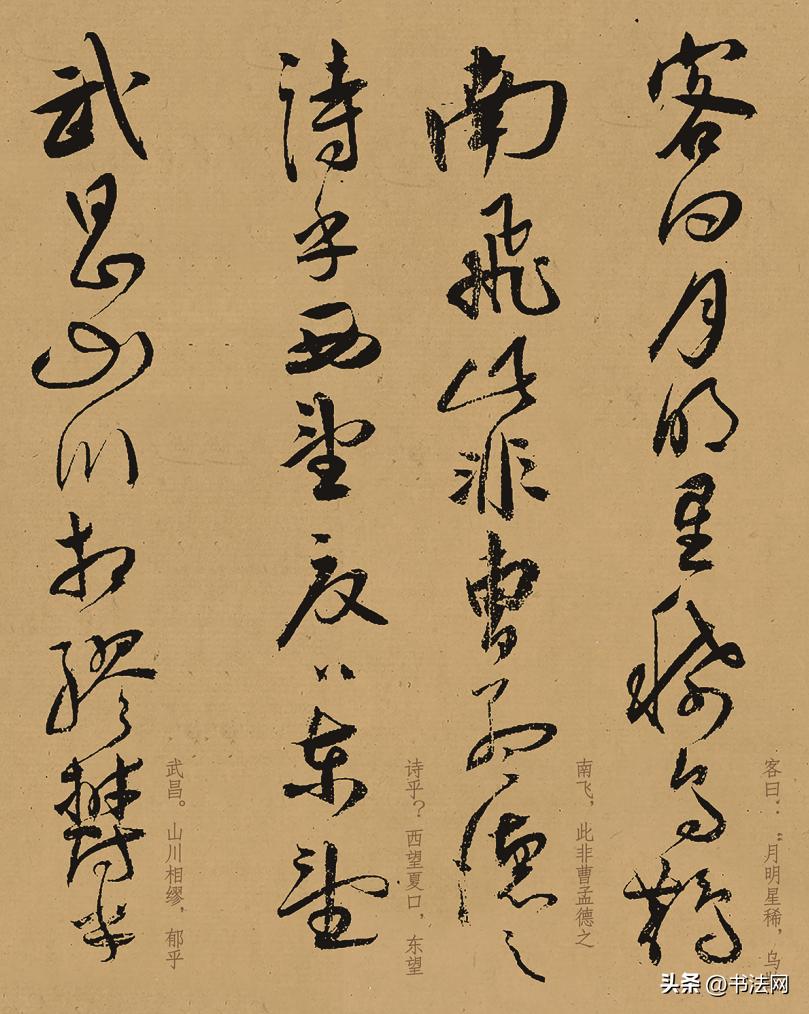 客曰月明星稀烏鵲
客曰：“月明星稀，乌
南飛此非曹孟德之
南飞，此非曹孟德之
詩乎西望夏口東望
诗乎？西望夏口，东望
武昌山川相繆鬱乎
武昌。山川相缪，郁乎
头条 @书法网